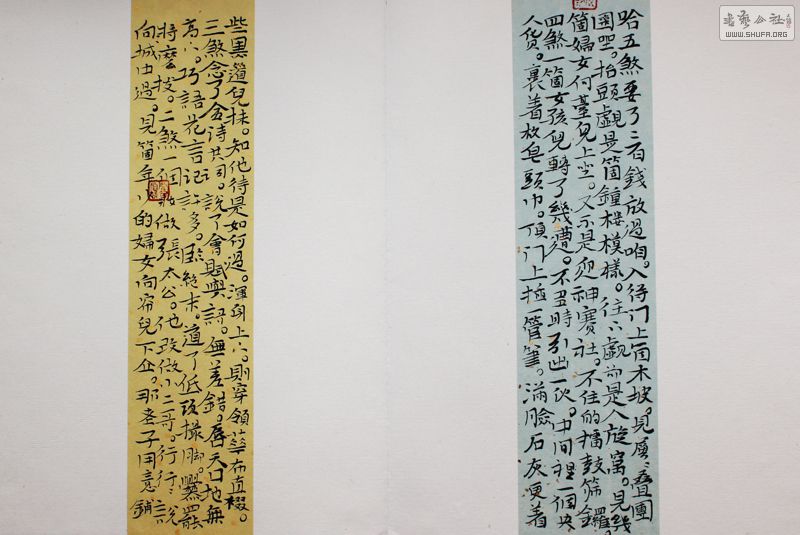 書藝公社
WWW.SHUFA.ORG
哈五煞要了二百錢放過咱。入得门上箇木坡。見層、叠團
圞坐。抬頭覷是箇鐘樓模樣。往下覷却是人旋窩。見幾
箇婦女向臺兒上坐。又不是迎神賽社。不住的擂鼓篩鑼
四煞一箇女孩兒轉了幾遭。不多時引出一伙。中间裡一個央
人货。裹着枚皂頭巾。頂门上插一管筆。滿臉石灰更着
些黑道兒抹。知他待是如何過。渾身上下。則穿領花布直裰。
三煞念了會詩共词。說了會賦與語。無差錯。唇天口地無
高下。巧語花言记許多。臨絕末。道了低頭撮脚。爨罷
將麼撥。二煞一個妝做張太公。他改做小二哥。行行、說
向城中過。見箇年少的婦女向帘兒下立。那老子用意鋪